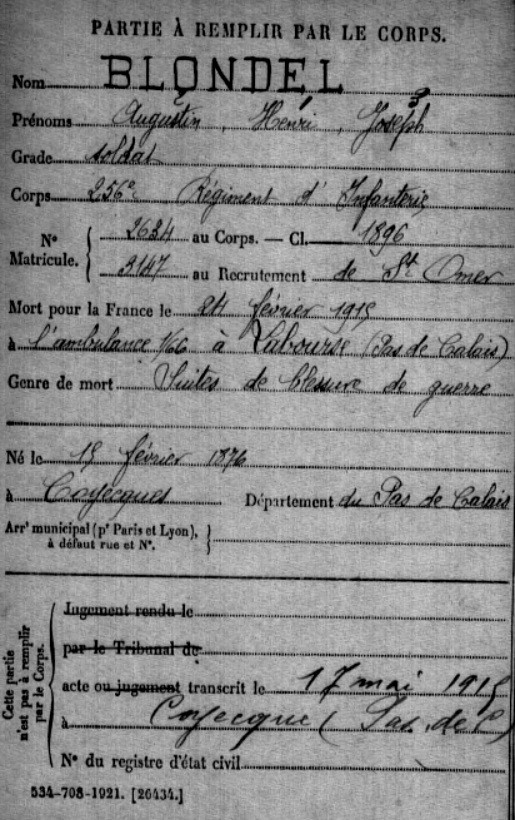 PARTIE À REMPLIR PAR LE CORPS.
Nom BLONDEL
Prénoms Augustin, Henri, Joseph
Grade soldat
Corps 256e Régiment d'Infanterie
N° Matricule. 2634 au Corps. — Cl. 1896
3147 au Recrutement de St Omer
Mort pour la France le 24 février 1915
à l'ambulance 1/66 à Labourse (Pas de Calais)
Genre de mort Suites de blessure de guerre
Né le 15 février 1876
à Coyecques Département du Pas de Calais
Arrt municipal (pr Paris et Lyon),
à défaut rue et N°.
Cette partie n'est pas à remplir par le Corps.
Jugement rendu le
par le Tribunal de
acte ou jugement transcrit le 17 mai 1915
à Coyecque (Pas. de C)
N° du registre d'état civil
534-708-1921. [26434.]